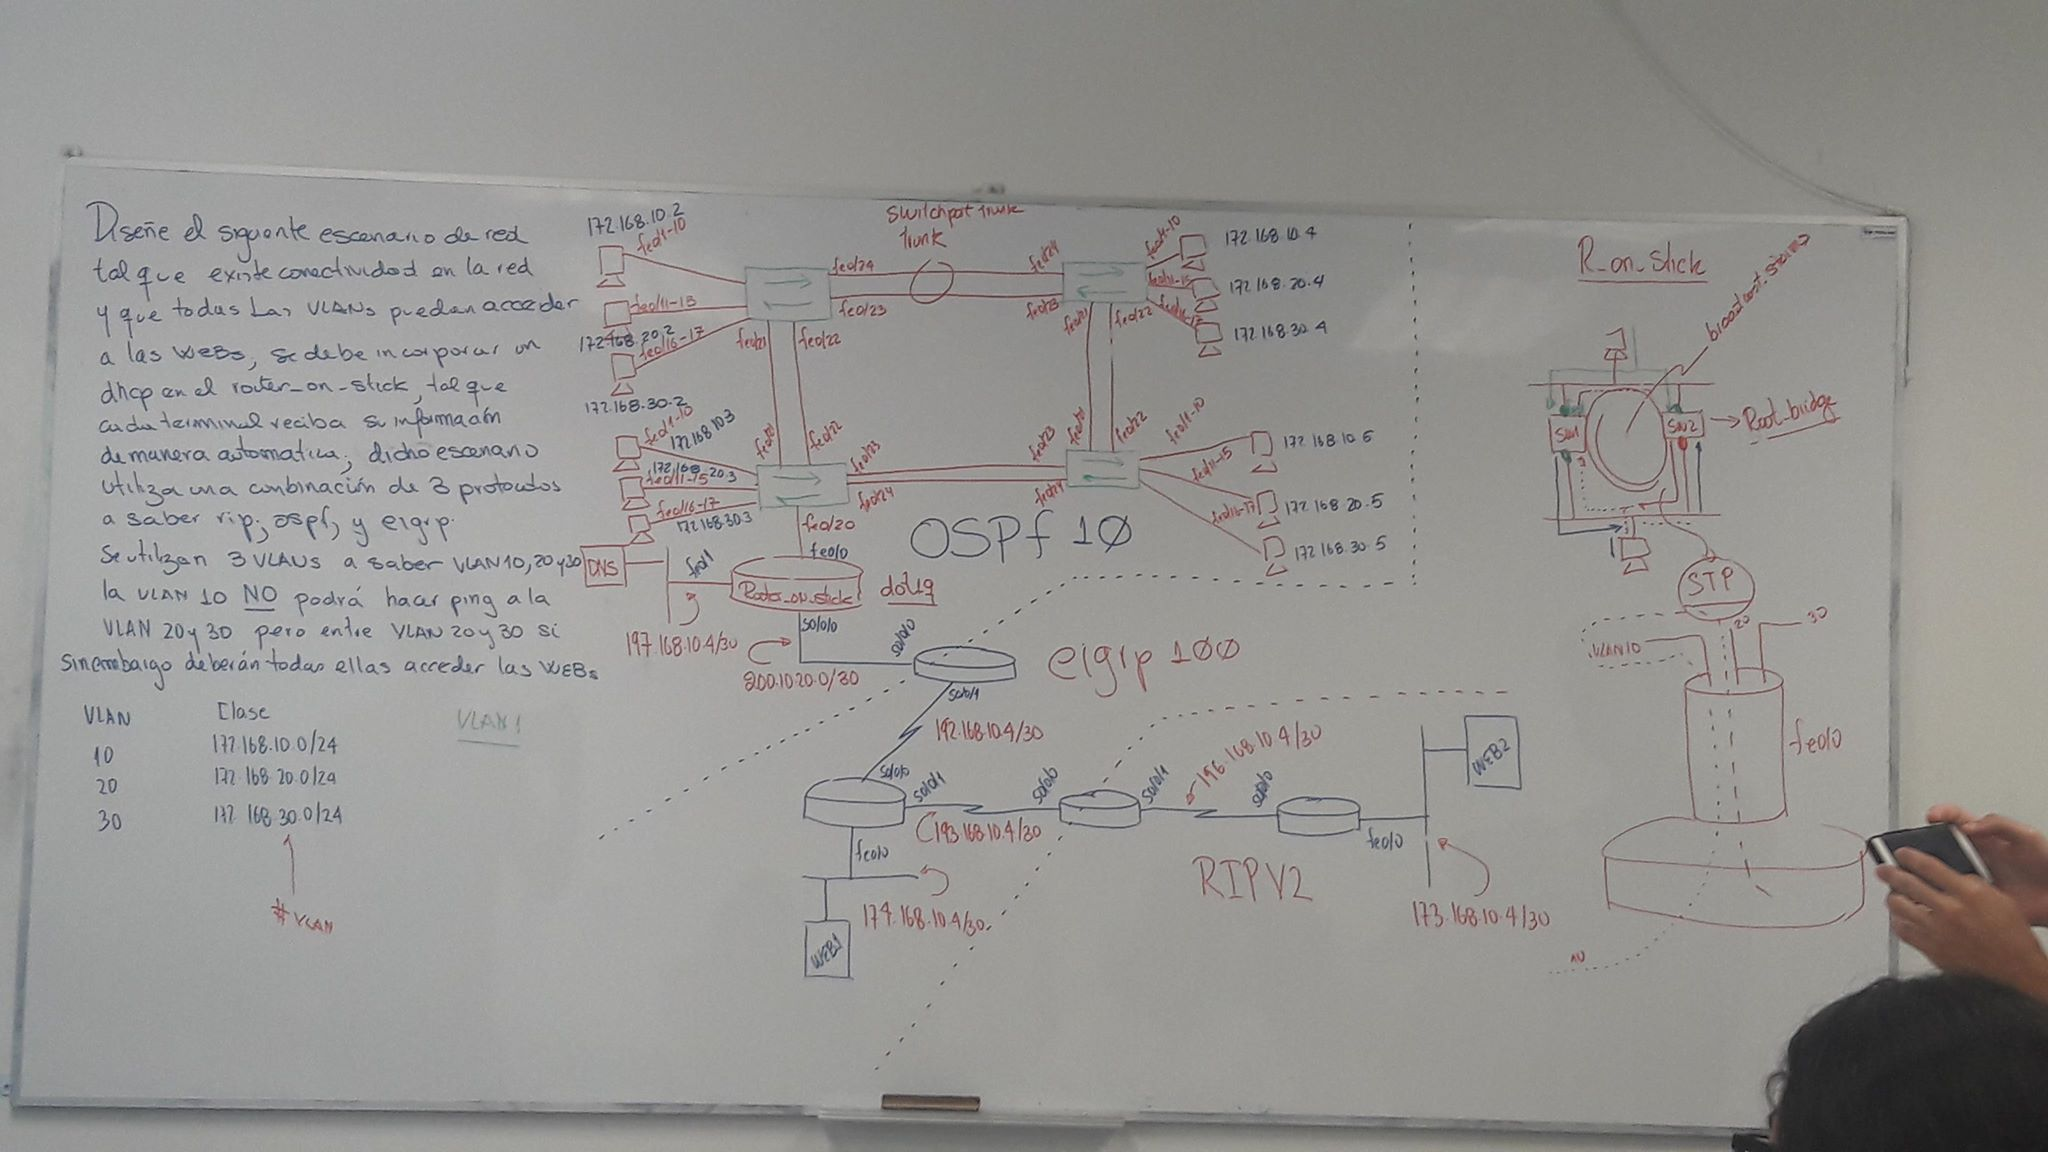 Diseñe el siguiente escenario de red
tal que existe conectividad en la red
y que todas Las VLANs puedan acceder
a las WEBs, se debe incorporar un
dhcp en el router_on_stick, tal que
cada terminal reciba su información
de manera automatica; dicho escenario
utiliza una conbinación de 3 protocolos
a saber rip; ospf; y eigrp.
Se utilizan 3 VLANs a saber VLAN10, 20 y 30
la VLAN 10 NO podrá hacer ping a la
VLAN 20 y 30 pero entre VLAN 20 y 30 si
sin embargo deberán todas ellas acceder las WEBs
VLAN Clase
10 172.168.10.0/24
20 172.168.20.0/24
30 172.168.30.0/24
# VLAN
VLAN 1
172.168.10.2
fe0/1-10
fe0/11-15
172.168.20.2
fe0/16-17
172.168.30.2
fe0/24
fe0/23
fe0/21
fe0/22
Switchport trunk
trunk
fe0/24
fe0/23
fe0/21
fe0/22
fe0/1-10
172.168.10.4
fe0/11-15
172.168.20.4
172.168.30.4
fe0/1-10
172.168.10.3
172.168.20.3
fe0/11-15
fe0/16-17
172.168.30.3
fe0/22
fe0/23
fe0/24
fe0/20
fe0/23
fe0/24
fe0/22
fe0/1-10
172.168.10.5
fe0/11-15
172.168.20.5
fe0/16-17
172.168.30.5
OSPf 10
DNS
fe0/1
fe0/0
Router_on_stick
dot1q
197.168.10.4/30
s0/0/0
s0/0/0
200.10.20.0/30
eigrp 100
s0/0/1
192.168.10.4/30
s0/0/0
s0/0/1
193.168.10.4/30
s0/0/0
s0/0/1
196.168.10.4/30
s0/0/0
fe0/0
WEB2
fe0/0
174.168.10.4/30
WEB1
RIPV2
173.168.10.4/30
R_on_stick
broadcast_storm
SW1
SW2
Root_bridge
STP
VLAN10
20
30
fe0/0
10